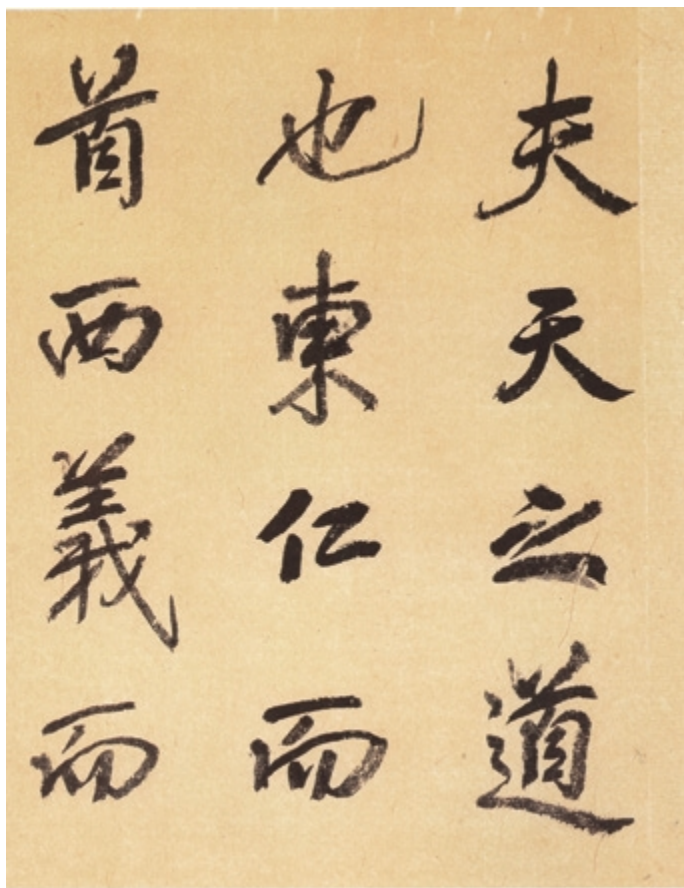 夫天之道
也東仁而
首西義而